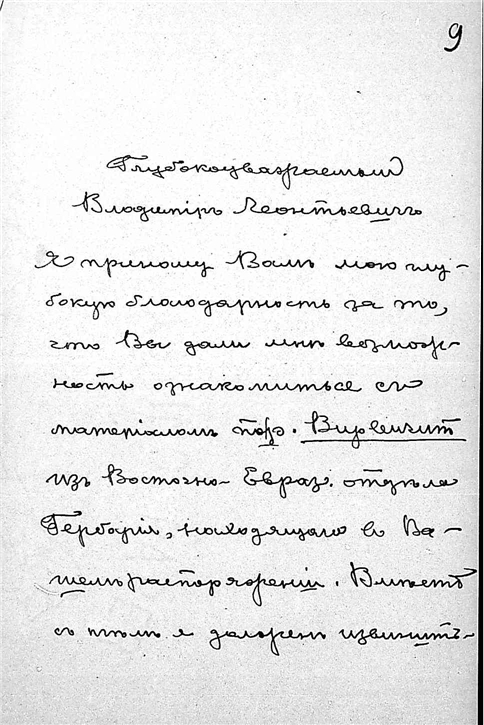 9
Глубокоуважаемый
Владиміръ Леонтьевичъ
Я приношу Вамъ мою глу-
бокую благодарность за то,
что Вы дали мнѣ возмож-
ность ознакомиться съ
матеріаломъ
изъ Восточно-Евраз. отдѣла
Гербарія, находящагося въ Ва-
шемъ распоряженіи. Вмѣстѣ
съ тѣмъ я долженъ извинить-